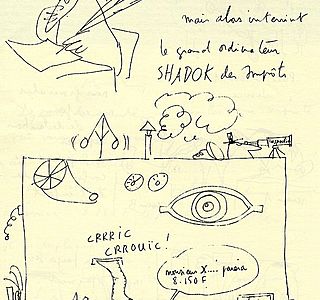 mais alors intervient
le grand ordinateur
SHADOK des Impôts
CRRRIC
CRROUÏC!
monsieur X.... paiera
8.150F